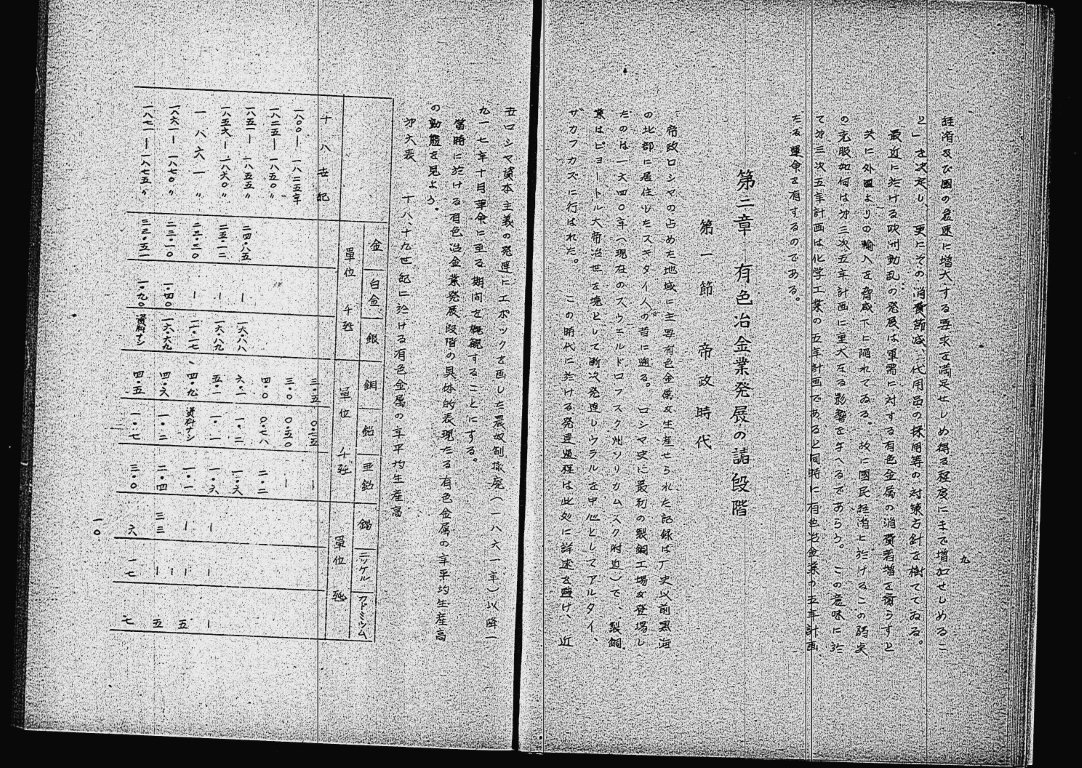 九
経済及び國の急速に増大する要求を満足せしめ得る程度にまで増加せしめるこ
と」を決定し、更にその消費節減、代用品の採用等の対策方針を樹てゝゐる。
最近に於ける欧州動乱の発展は軍需に対する有色金属の消費著増を齎らすと
共に外國よりの輸入を脅威下に陥れてゐる。故に國民経済に於けるこの
の克服如何は第三次五年計画に重大なる影響を与へるであらう。この意味に於
て第三次五年計画は化学工業の五年計画であると同時に有色冶金業の五年計画
たる運命を有するのである。
第二章 有色冶金業発展の諸段階
第一節 帝政時代
帝政ロシヤの占めた地域に主要有色金属が生産せられた記録は歴史以前黒海
の北部に居住せるスキタイ人の昔に遡る。ロシヤ史に最初の製銅工場が登場し
たのは一六四〇年(現在のスウェルドロフスク州ソリカムスク附近)で、製銅
業はピョートル大帝治世を境として漸次発達しウラルを中心としてアルタイ、
ザカフカズに行はれた。この時代に於ける発達過程は此処に詳述を避け、近
世ロシヤ資本主義の発達にエポックを画した農奴制撤廃(一八六一年)以降一
九一七年十月革命に至る期間を概観することにする。
當時に於ける有色冶金業発展段階の具体的表現たる有色金属の年平均生産高
の動態を見よう。
第六表 十八、十九世紀に於ける有色金属の年平均生産高
金 白金 銀 銅 鉛 亜鉛 錫 ニッケル カドミウム
單位 千瓩 單位 千瓲 單位 瓲
十八世紀 三・五 〇・三五 ー
一八〇〇ー一八二五年 三・〇 〇・五〇 ー
一八二五ー一八五〇〃 四・〇 〇・七八 二・二
一八五一ー一八五五〃 二四・八五 ー 一六・八八 六・二 一・二 一・六 ー
一八五六ー一八六〇〃 ー 五・一 一・一 一・六 ー ー
一八六一〃 ー 四・九 資料ナシ 一・一 ー ー 五
一八六一ー一八七〇〃 四・六 一・二 二・四 三三 ー 五
一八七一ー一八七五〃 三三・五一 一・九〇 資料ナシ 四・五 一・七 三・〇 六 一七 七
一〇